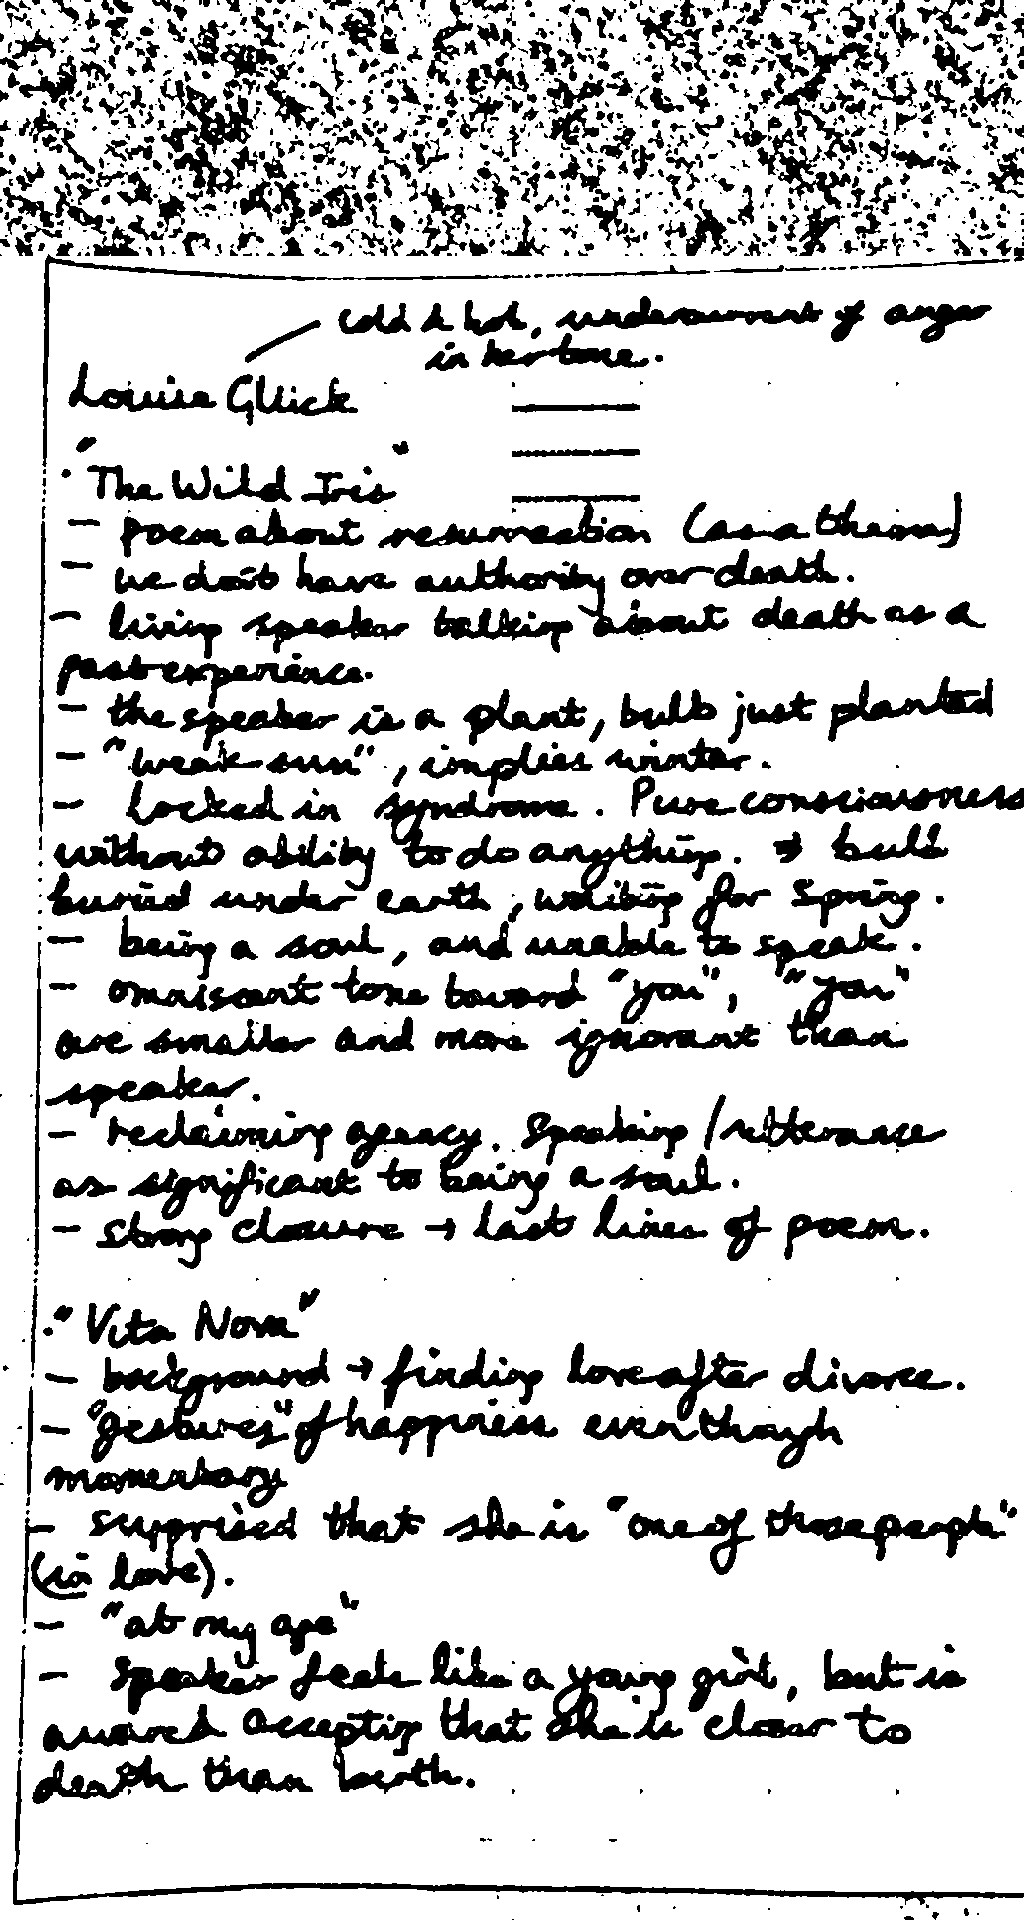 cold & hot, undercurrent of anger
in her tone.
Louise Glück
· "The Wild Iris"
- Poem about resurrection (as a theme)
- we don't have authority over death.
- living speaker talking about death as a
past experience.
- the speaker is a plant, bulb just planted
- "weak sun", implies winter.
- Locked in syndrome. Pure consciousness
without ability to do anything. → bulb
buried under earth, waiting for Spring.
- being a soul, and unable to speak.
- omniscent tone toward "you", "you"
are smaller and more ignorant than
speaker.
- reclaiming agency. Speaking / utterance
as significant to being a soul.
- strong closure → last lines of poem.
· "Vita Nova"
- background → finding love after divorce.
- "gestures" of happiness even though
momentary
- surprised that she is "one of those people"
(in love).
- "at my age"
- speaker feels like a young girl, but is
accepting that she is closer to
death than birth.